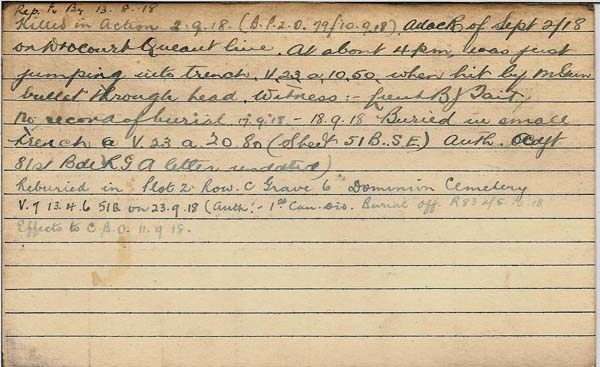 Rep. to By 13. 8. 18
Killed in Action 2.9.18. (B.P.2.O. 79/10.9.18). Attack of Sept 2/18
on Drocourt Queant line. At about 4 pm, was just
jumping into trench. V.23.a.10.50. when hit by M Gun
bullet through head. Witness:- Lieut B J Tait
No record of burial 17.9.18. - 18.9.18 Buried in small
trench @ V.23.a.20.80 (Sheet 51B. S.E.) Auth.
81st Bde R.G.A letter undated)
Reburied in Plot 2. Row. C Grave 6 Dominion Cemetery
V. 9 13.4.6 51B. on 23.9.18 (Auth:- 1st Can. Div. Burial Off. R83 18
Effects to C.B.O. 11.9.18.